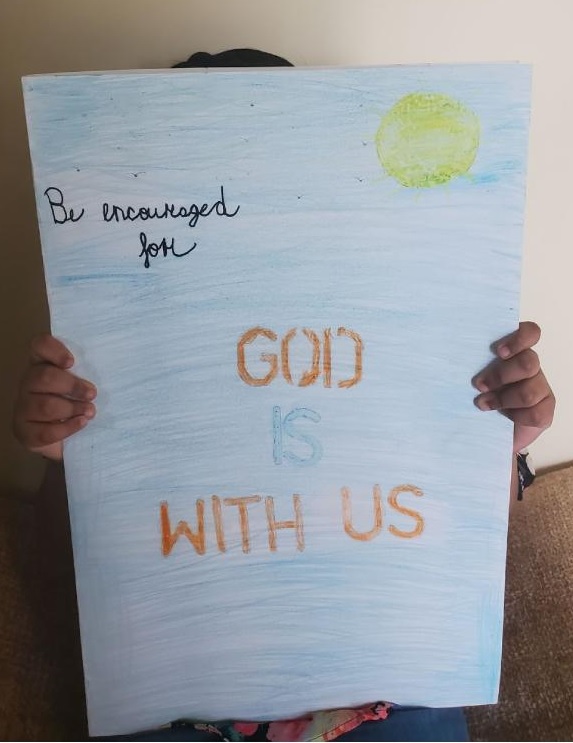 Be encouraged
for
GOD
IS
WITH US